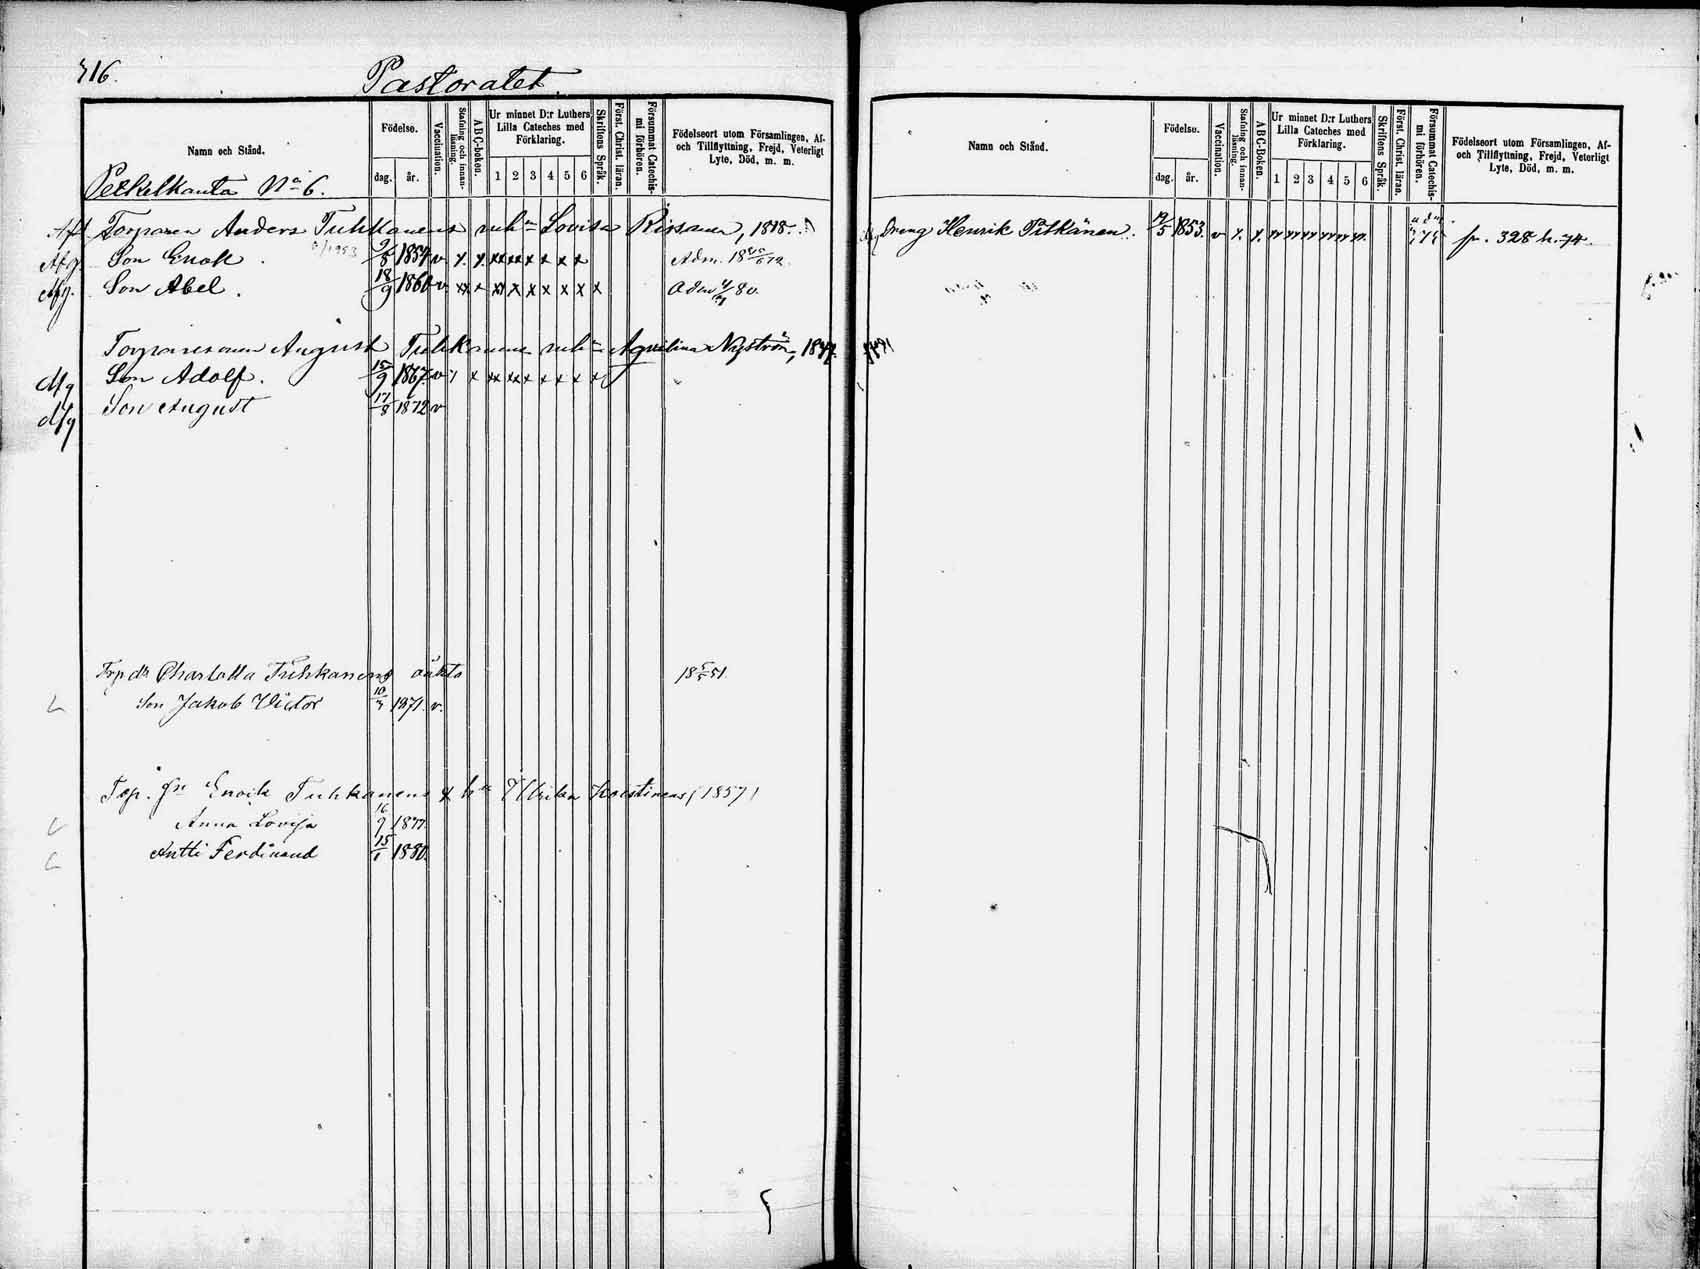 316.
Pastoratet
Namn och Stånd.
Födelse.
dag. år.
Vaccination.
Stafning och innanläsning.
ABC-boken.
Ur minnet D:r Luthers Lilla Cateches med Förklaring.
1 2 3 4 5 6
Skriftens Språk.
Först. Christ. läran.
Försummat Catechismi förhören.
Födelseort utom Församlingen, Af- och Tillflyttning, Frejd, Veterligt Lyte, Död, m. m.
N:o 6.
Torparen Anders Tuhkanens Lovisa Rissanen, 1818.
Son Enok. 9/8 1854 v x x xx xx x x x x Adm. 18
Son Abel. 18/9 1860 v xx x xx x x x x x x Adm 80.
Torparesonen August Tuhkanens Aqvilina Nyström,
Son Adolf. 9 1867 v x xx xx x x x x x
Son August 17/8 1872 v
Charlotta Tuhkanens oäkta 18 51
Son Jakob Victor 10/3 1871. v.
Enock Tuhkanens Ulrika Kostinens (1857)
Anna Lovisa 16/9 1877.
Antti Ferdinand 15/1 1880.
Namn och Stånd.
Födelse.
dag. år.
Vaccination.
Stafning och innanläsning.
ABC-Boken.
Ur minnet D:r Luthers Lilla Cateches med Förklaring.
1 2 3 4 5 6
Skriftens Språk.
Först. Christ. läran.
Försummat Catechismi förhören.
Födelseort utom Församlingen, Af- och Tillflyttning, Frejd, Veterligt Lyte, Död, m. m.
Dreng Henrik Pitkänen. 5 1853. v x x fr. 328 h. 74.